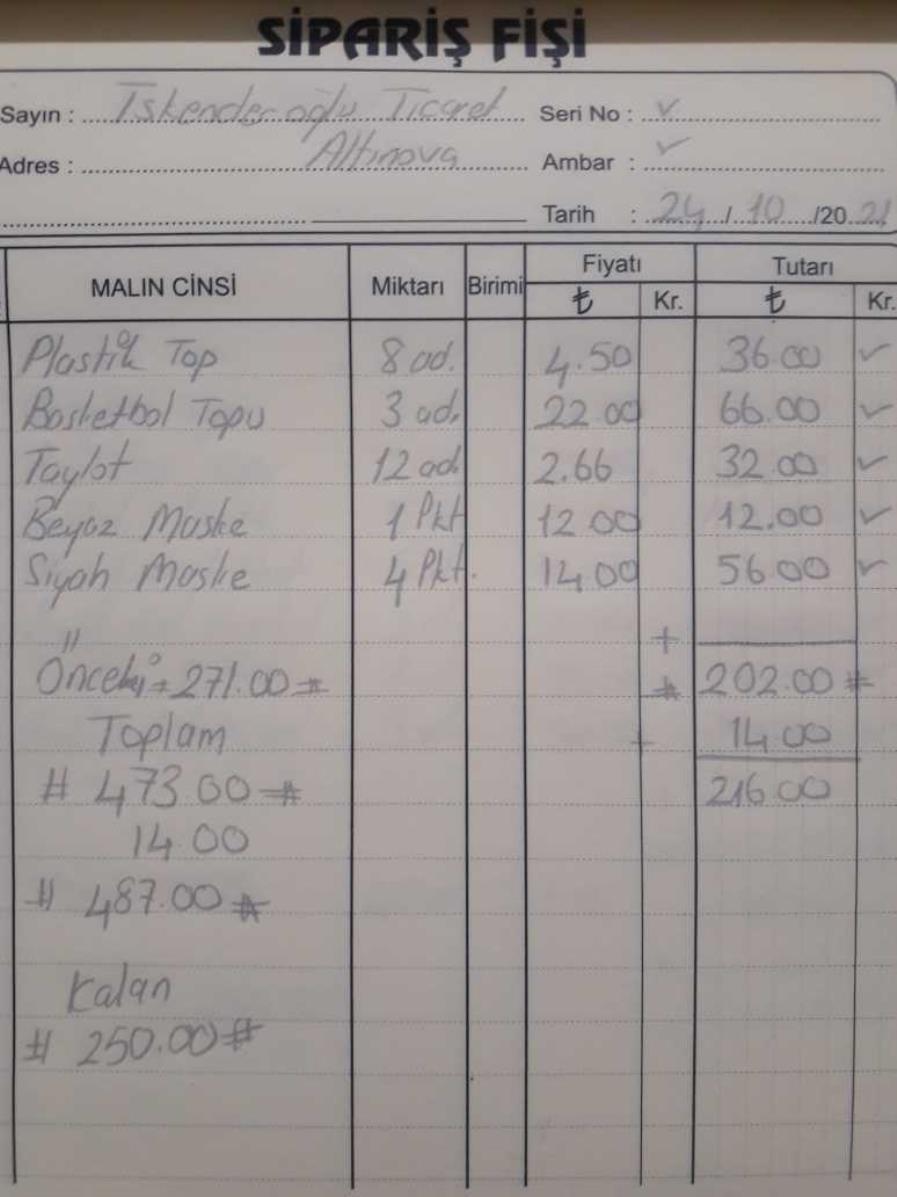 SİPARİŞ FİŞİ
Sayın : İskenderoğlu Ticaret Seri No : ✓
Adres : Altınova Ambar : ✓
Tarih : 24 / 10 /20 21
MALIN CİNSİ Miktarı Birimi Fiyatı Tutarı
₺ Kr. ₺ Kr.
Plastik Top 8 ad. 4.50 36.00 ✓
Basketbol Topu 3 ad. 22.00 66.00 ✓
Taylot 12 ad. 2.66 32.00 ✓
Beyaz Maske 1 Pkt 12.00 12.00 ✓
Siyah Maske 4 Pkt. 14.00 56.00 ✓
+
Önceki = 271.00 # # 202.00 #
Toplam + 14.00
# 473.00 # 216.00
14.00
# 487.00 #
Kalan
# 250.00 #